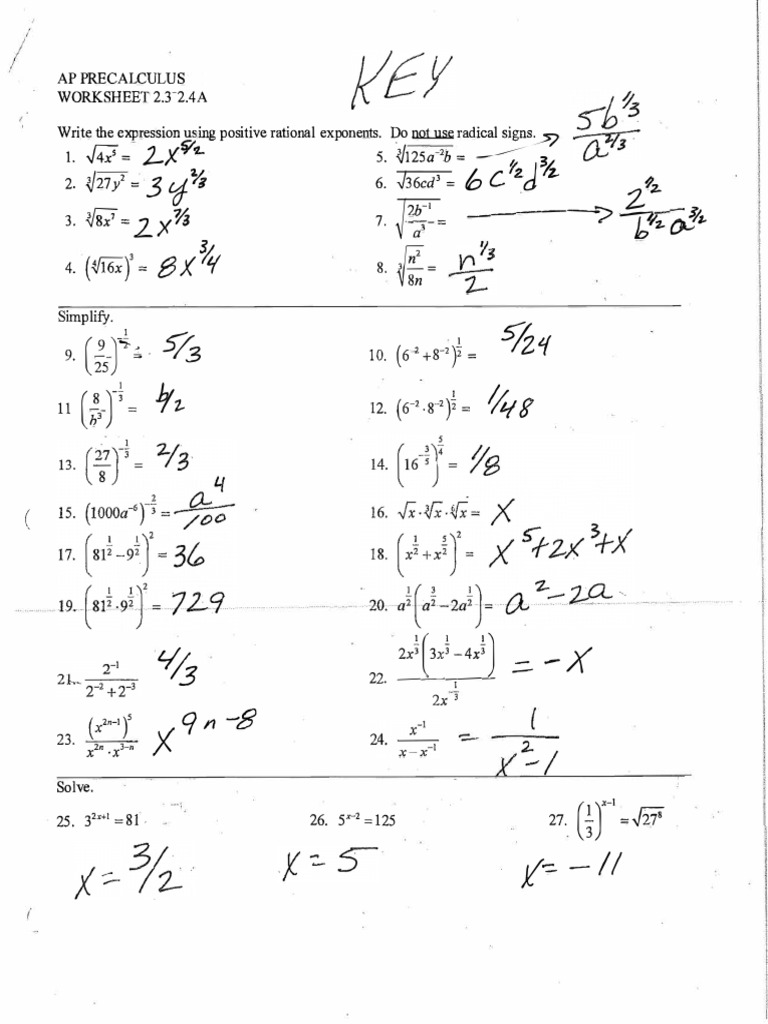 KEY
AP PRECALCULUS
WORKSHEET 2.3-2.4A
Write the expression using positive rational exponents. Do not use radical signs.
1. √(4x⁵) = 2x^(5/2)
5. ∛(125a⁻²b) = → 5b^(1/3) / a^(2/3)
2. ∛(27y²) = 3y^(2/3)
6. √(36cd³) = 6c^(1/2)d^(3/2)
3. ∛(8x⁷) = 2x^(7/3)
7. √(2b⁻¹/a³) = → 2^(1/2) / (b^(1/2)a^(3/2))
4. (∜(16x))³ = 8x^(3/4)
8. ∛(n²/8n) = n^(1/3)/2
Simplify.
9. (9/25)^(-1/2) = 5/3
10. (6⁻² + 8⁻²)^(1/2) = 5/24
11 (8/b³)^(-1/3) = b/2
12. (6⁻² · 8⁻²)^(1/2) = 1/48
13. (27/8)^(-1/3) = 2/3
14. (16^(-3/5))^(5/4) = 1/8
15. (1000a⁻⁶)^(-2/3) = a⁴/100
16. √x · ∛x · ⁶√x = x
17. (81^(1/2) − 9^(1/2))² = 36
18. (x^(1/2) + x^(5/2))² = x⁵+2x³+x
19. (81^(1/2) · 9^(1/2))² = 729
20. a^(1/2)(a^(3/2) − 2a^(1/2)) = a²−2a
21. 2⁻¹ / (2⁻² + 2⁻³) 4/3
22. 2x^(1/3)(3x^(1/3) − 4x^(1/3)) / 2x^(-1/3) = −x
23. (x^(2n−1))⁵ / (x^(2n) · x^(3−n)) x^(9n−8)
24. x⁻¹ / (x − x⁻¹) = 1/(x²−1)
Solve.
25. 3^(2x+1) = 81
26. 5^(x−2) = 125
27. (1/3)^(x−1) = √(27⁸)
x = 3/2
x = 5
x = −11